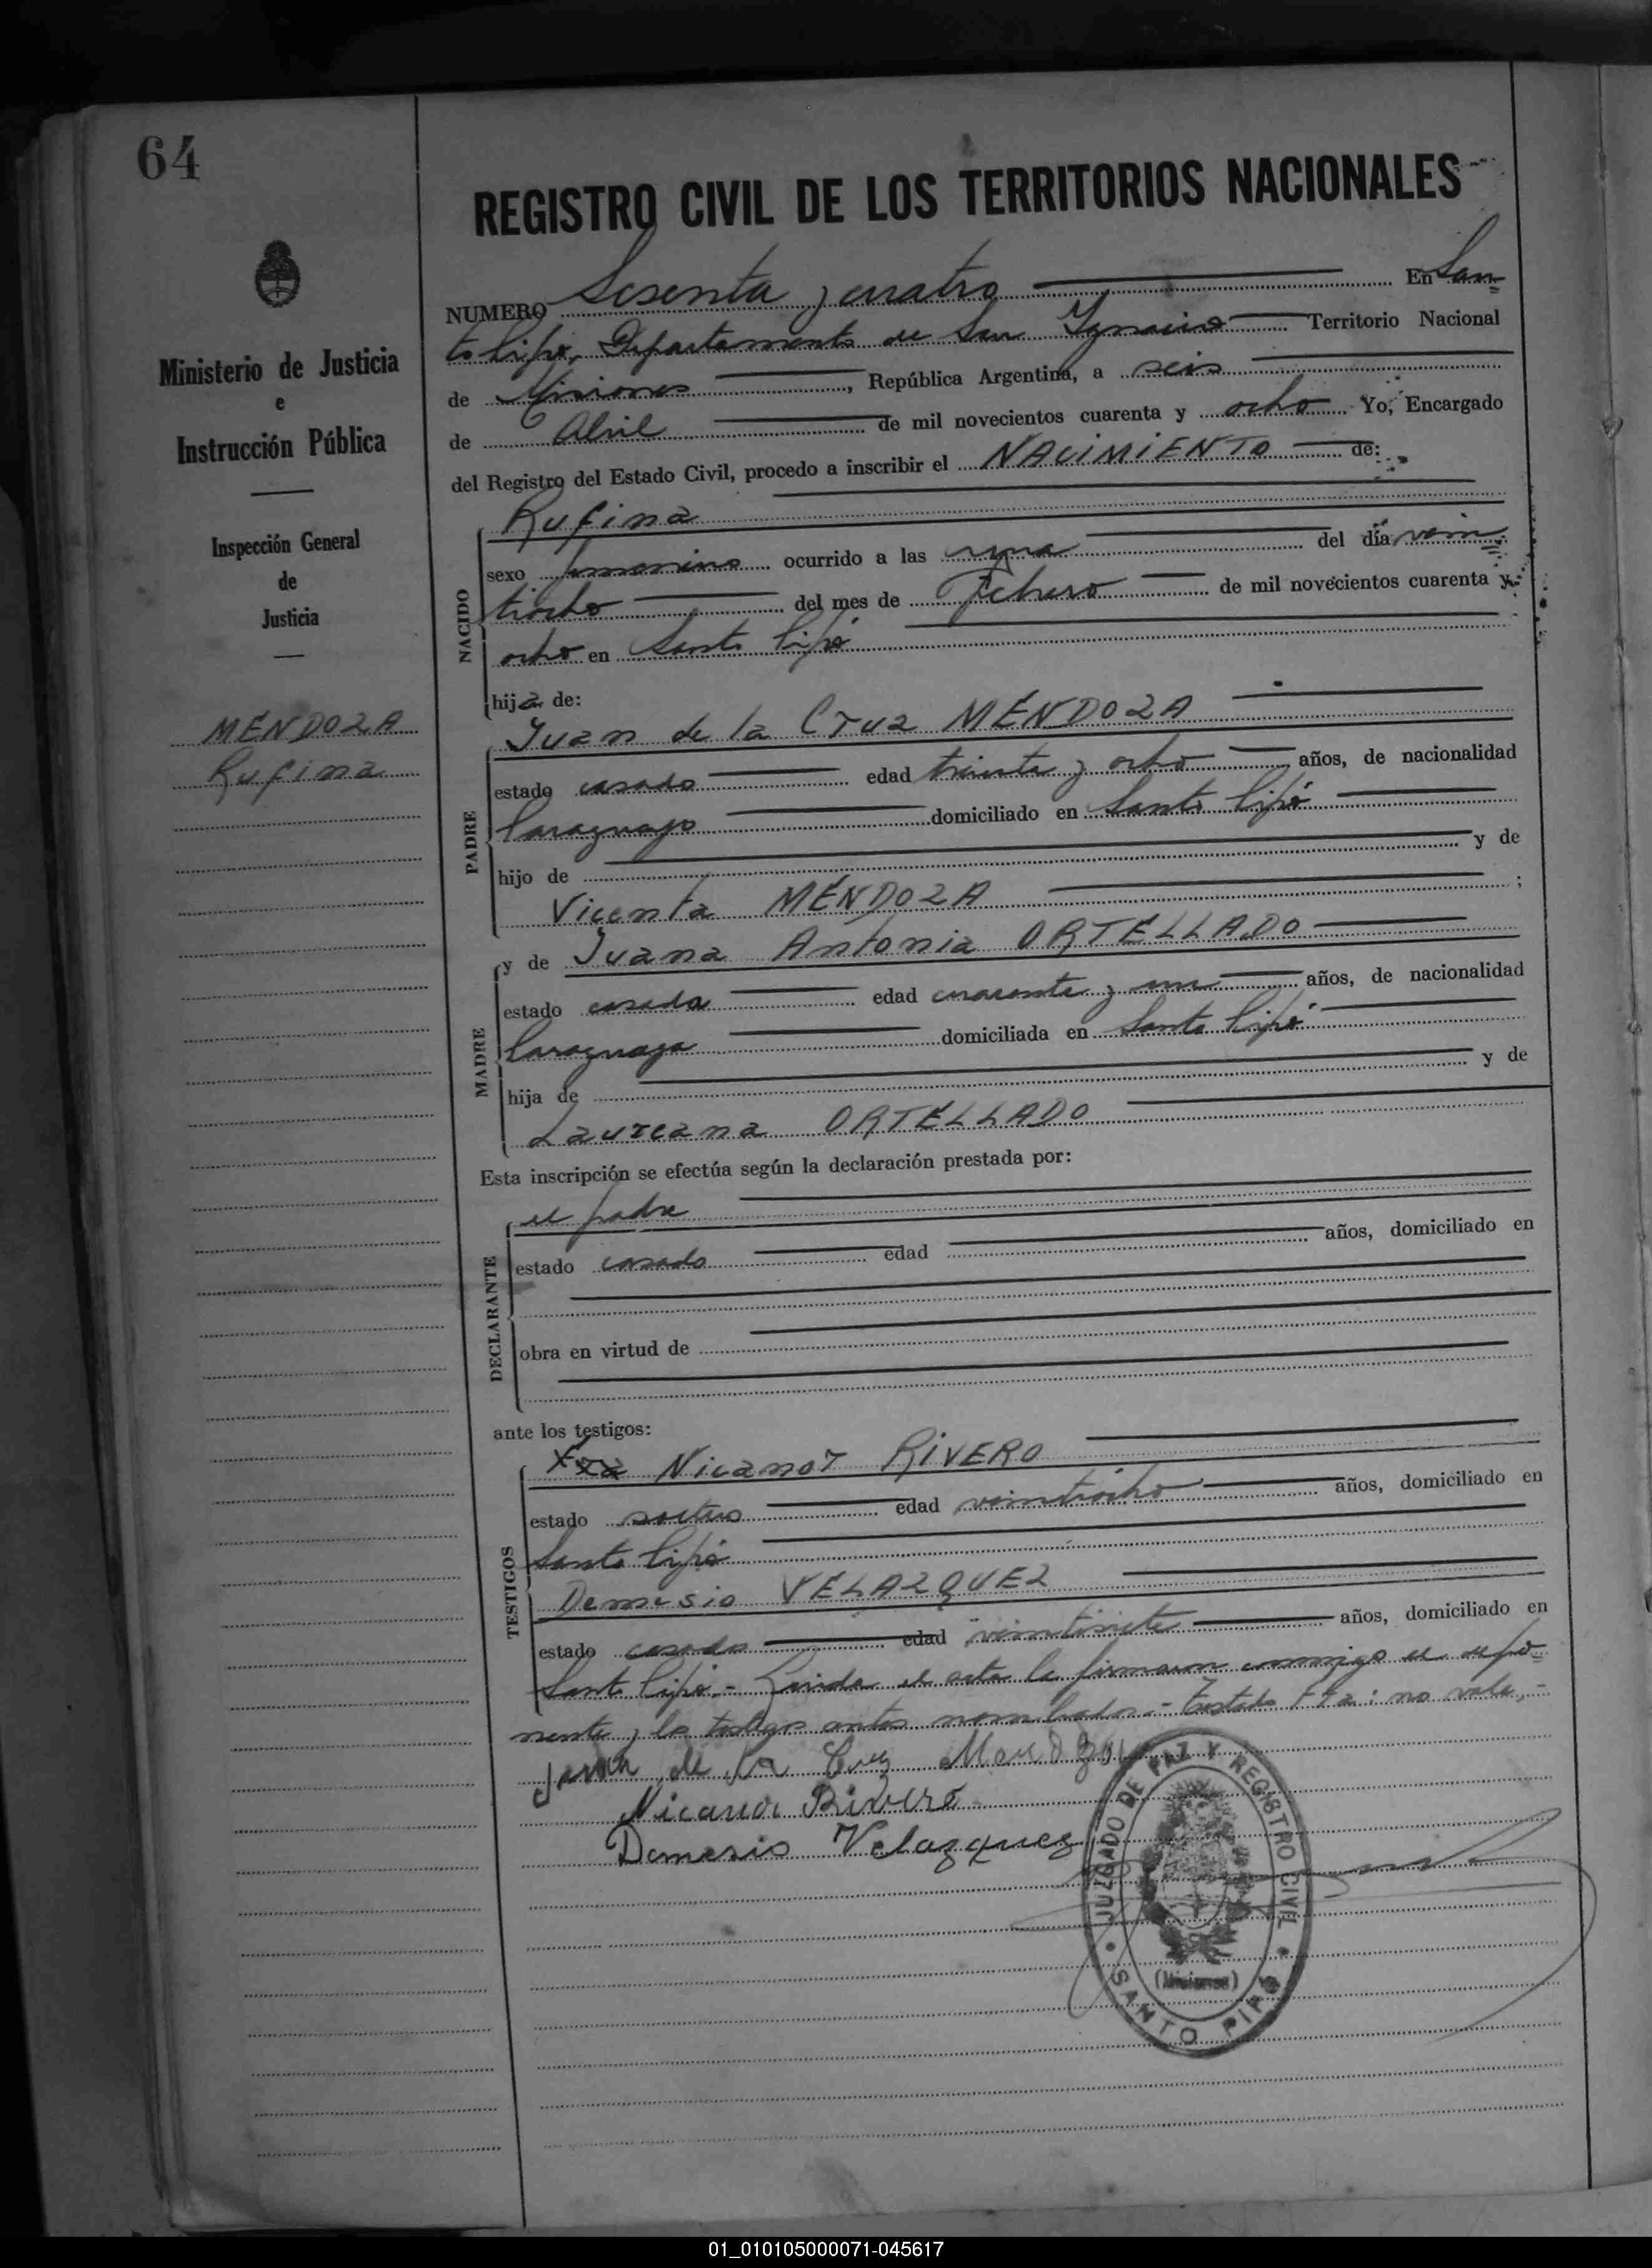 64
REGISTRO CIVIL DE LOS TERRITORIOS NACIONALES
Ministerio de Justicia
e
Instrucción Pública
Inspección General
de
Justicia
MENDOZA
Rufina
NUMERO Sesenta y cuatro En San
to Pipó, Departamento de San Ignacio Territorio Nacional
de Misiones, República Argentina, a seis
de Abril de mil novecientos cuarenta y ocho Yo, Encargado
del Registro del Estado Civil, procedo a inscribir el NACIMIENTO de:
NACIDO
Rufina
sexo femenino ocurrido a las una del día vein
tiocho del mes de Febrero de mil novecientos cuarenta y
ocho en Santo Pipó
hija de:
PADRE
Juan de la Cruz MENDOZA
estado casado edad treinta y ocho años, de nacionalidad
Paraguayo domiciliado en Santo Pipó
hijo de y de
Vicenta MENDOZA ;
MADRE
y de Juana Antonia ORTELLADO
estado casada edad cuarenta y un años, de nacionalidad
Paraguaya domiciliada en Santo Pipó
hija de y de
Laureana ORTELLADO
Esta inscripción se efectúa según la declaración prestada por:
DECLARANTE
el padre
estado casado edad años, domiciliado en
obra en virtud de
ante los testigos:
TESTIGOS
Nicanor RIVERO
estado soltero edad veintiocho años, domiciliado en
Santo Pipó
Demesio VELAZQUEZ
estado casado edad veintisiete años, domiciliado en
Santo Pipó.- Leída el acta la firmaron conmigo el depo
nente y los testigos antes nombrados.- Testado: no vale.-
Juan de la Cruz Mendoza
Nicanor Rivero
Demesio Velazquez
JUZGADO DE PAZ Y REGISTRO CIVIL
(Misiones)
SANTO PIPÓ
01_010105000071-045617